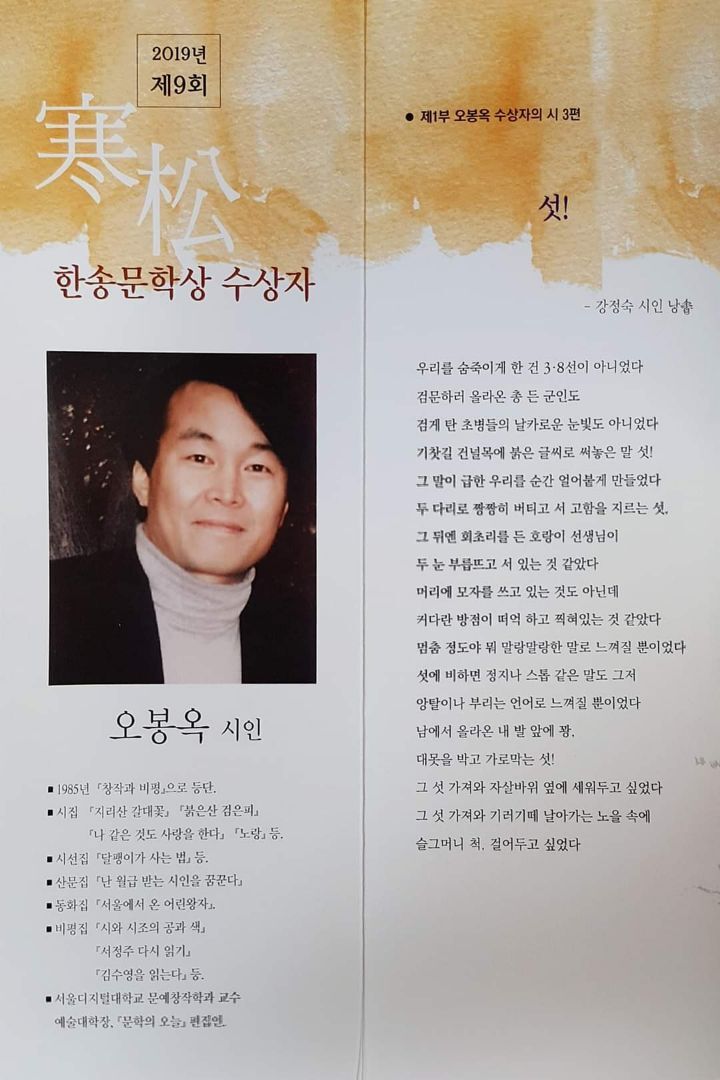 2019년
제9회
寒松
한송문학상 수상자
오봉옥 시인
■ 1985년 『창작과 비평』으로 등단.
■ 시집 『지리산 갈대꽃』 『붉은산 검은피』
『나 같은 것도 사랑을 한다』 『노랑』 등.
■ 시선집 『달팽이가 사는 법』 등.
■ 산문집 『난 월급 받는 시인을 꿈꾼다』
■ 동화집 『서울에서 온 어린왕자』.
■ 비평집 『시와 시조의 공과 색』
『서정주 다시 읽기』
『김수영을 읽는다』 등.
■ 서울디지털대학교 문예창작학과 교수
예술대학장, 『문학의 오늘』
● 제1부 오봉옥 수상자의 시 3편
섯!
- 강정숙 시인
우리를 숨죽이게 한 건 3·8선이 아니었다
검문하러 올라온 총 든 군인도
검게 탄 초병들의 날카로운 눈빛도 아니었다
기찻길 건널목에 붉은 글씨로 써놓은 말 섯!
그 말이 급한 우리를 순간 얼어붙게 만들었다
두 다리로 짱짱히 버티고 서 고함을 지르는 섯,
그 뒤엔 회초리를 든 호랑이 선생님이
두 눈 부릅뜨고 서 있는 것 같았다
머리에 모자를 쓰고 있는 것도 아닌데
커다란 방점이 떠억 하고 찍혀있는 것 같았다
멈춤 정도야 뭐 말랑말랑한 말로 느껴질 뿐이었다
섯에 비하면 정지나 스톱 같은 말도 그저
앙탈이나 부리는 언어로 느껴질 뿐이었다
남에서 올라온 내 발 앞에 꽝,
대못을 박고 가로막는 섯!
그 섯 가져와 자살바위 옆에 세워두고 싶었다
그 섯 가져와 기러기떼 날아가는 노을 속에
슬그머니 척, 걸어두고 싶었다